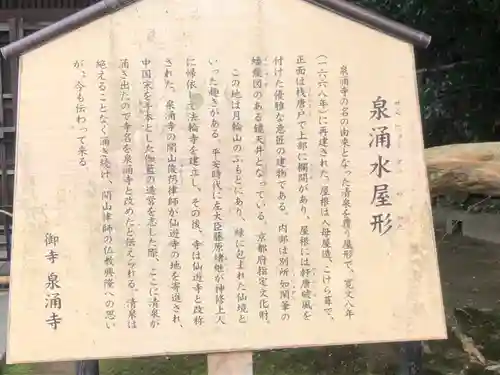 泉涌水屋形
泉涌寺の名の由来となった清泉を覆う屋形で、寛文八年
(一六六八年)に再建された。屋根は入母屋造、こけら葺で、
正面は桟唐戸で上部に欄間があり、屋根には軒唐破風を
付けた優雅な意匠の建物である。内部は別所如閑筆の
蟠龍図のある鏡天井となっている。京都府指定文化財。
この地は月輪山のふもとにあり、緑に包まれた仙境と
いった趣きがある。平安時代に左大臣藤原緒継が神修上人
に帰依して法輪寺を建立し、その後、寺は仙遊寺と改称
された。泉涌寺の開山俊芿律師が仙遊寺の地を寄進され、
中国宋を手本とした伽藍の造営を志した際、ここに清泉が
涌き出たので寺名を泉涌寺と改めたと伝えられる。清泉は
絶えることなく涌き続け、開山律師の仏教興隆への思い
が、今も伝わって来る
御寺 泉涌寺